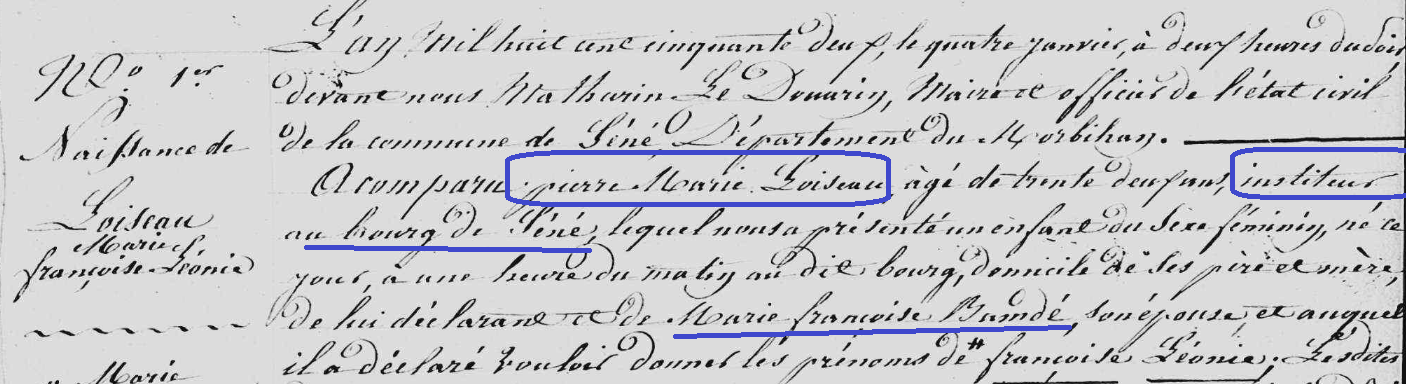 N.o 1er
Naissance de
Loiseau
Marie
françoise Léonie
L'an Mil huit cent cinquante deux, le quatre janvier, à deux heures du soir,
devant nous Mathurin Le Douarin, Maire et officier de l'état civil
de la commune de Séné, Département du Morbihan.
A comparu pierre Marie Loiseau, âgé de trente deux ans, instituteur
au bourg de Séné, lequel nous a présenté un enfant du sexe féminin, né ce
jour, à une heure du matin au dit bourg, domicile de ses père et mère,
de lui déclarant et de Marie françoise Bamdé, son épouse et auquel
il a déclaré vouloir donner les prénoms de # françoise Léonie. Lesdites
Marie